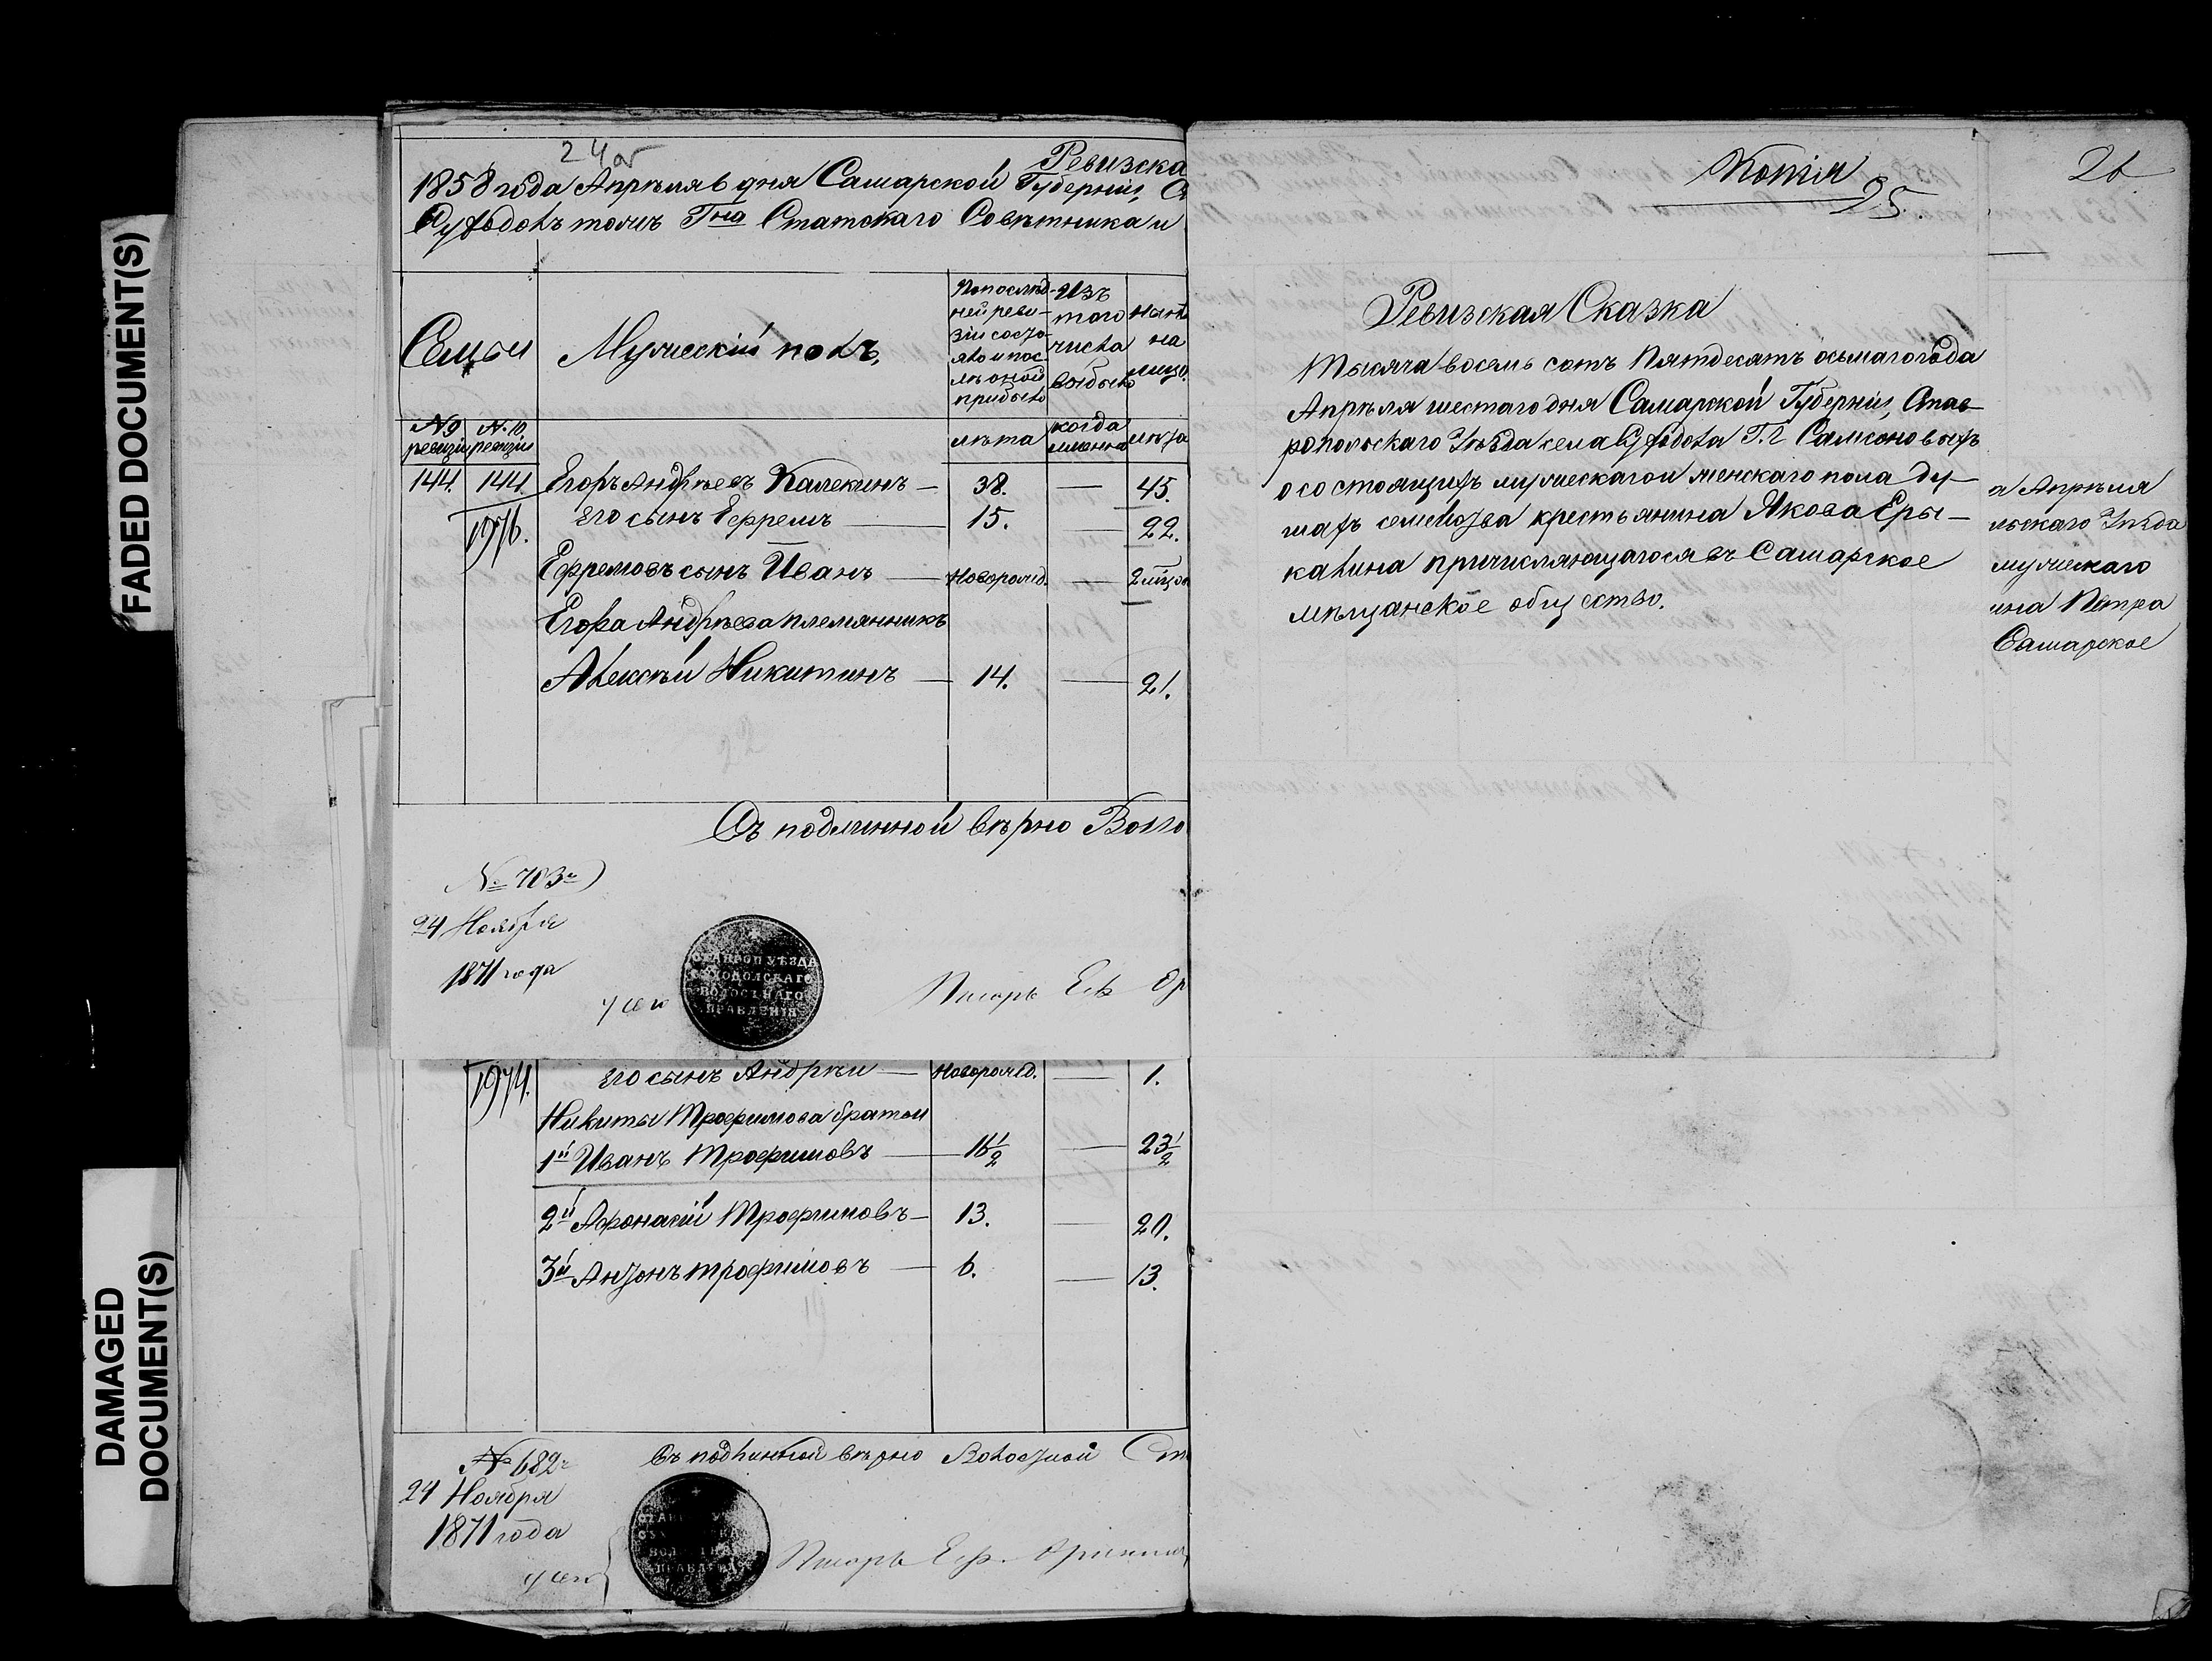 FADED DOCUMENT(S)
DAMAGED
DOCUMENT(S)
24 об
Ревизска
1858 года Апрѣля 6 дня Самарской Губерніи, С
Сухододѣ тожъ Гна Статскаго Совѣтника и
Семьи
Мужескій полъ,
По послѣд-
ней реви-
зіи состо-
яло и пос-
лѣ оной
прибыло
Изъ
того
числа
выбыло
Нынѣ
на
лицо.
№ 9
ревизіи
№ 10
ревизіи
лѣта
когда
именно
лѣта
144. 144. Егоръ Андрѣевъ Калекинъ — 38. — 45.
1976. Его сынъ Ефремъ — 15. — 22.
Ефремовъ сынъ Иванъ — Новорожд. — 2 мѣсяц
Егора Андрѣева племянникъ
Алексѣй Никитинъ — 14. — 21.
Съ подлинной вѣрно Воло
№ 703й
24 Ноября
1871 года
СТАВРОП УѢЗДА
СУХОДОЛСКАГО
ВОЛОСТНАГО
ПРАВЛЕНІЯ
Писарь Еф Ор
1974. Его сынъ Андрѣй — Новорожд. — 1.
Никиты Трофимова братья
1й Иванъ Трофимовъ — 16½ — 23½
2й Афонасій Трофимовъ — 13. — 20.
3й Антонъ Трофимовъ — 6. — 13.
№ 682й
24 Ноября
1871 года
Съ подлинной вѣрно Волостной Ст
Писарь Еф.
Копія
25.
26
Ревизская Сказка
Тысяча восемь сотъ Пятдесятъ осьмаго года
Апрѣля шестаго дня Самарской Губерніи, Став-
ропольскаго Уѣзда села Суходола Г.г Самсоновыхъ
о состоящихъ мужескаго и женскаго пола ду-
шахъ семейства крестьянина Якова Еры-
калина причисляющагося въ Самарское
мѣщанское общество.
а Апрѣля
льскаго Уѣзда
мужескаго
ина Петра
Самарское